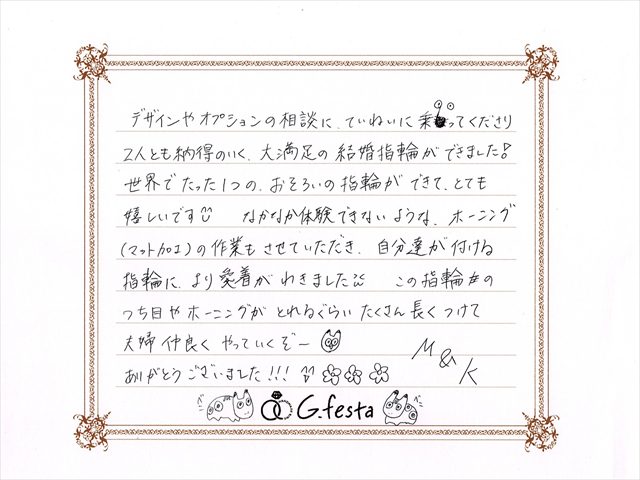 デザインやオプションの相談に、ていねいに乗ってくださり
2人とも納得のいく、大満足の結婚指輪ができました!
世界でたった1つの、おそろいの指輪ができて、とても
嬉しいです なかなか体験できないような、ホーニング
(マット加工)の作業もさせていただき、自分達が付ける
指輪に、より愛着がわきました この指輪の
つち目やホーニングがとれるぐらいたくさん長くつけて
夫婦仲良くやっていくぞー
M & K
ありがとうございました!!!
G.festa